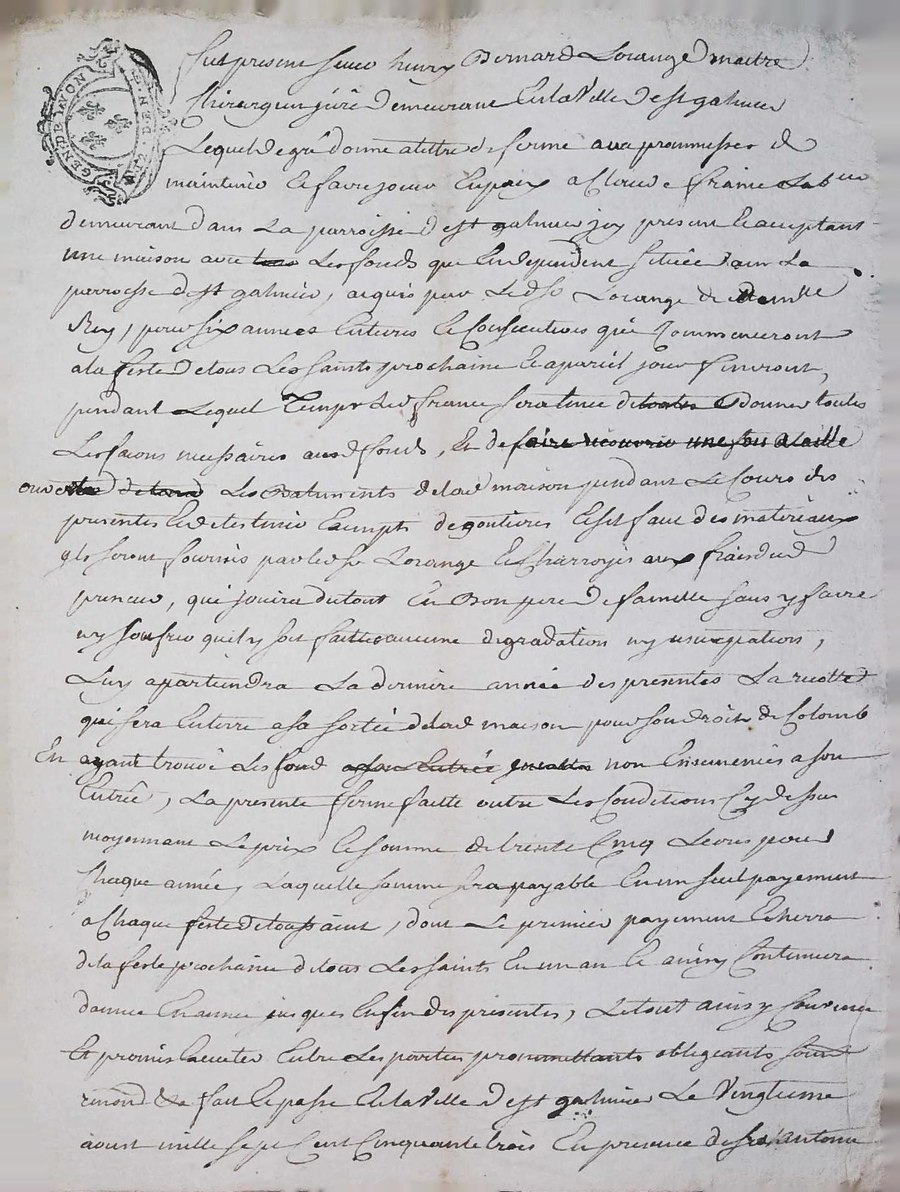 GEN. DE LYON
Fut present sieur henry Bernard Lorange maitre
Chirurgien juré demeurant En la Ville de st galmier
Lequel de gré donne a tiltre de ferme avec prommesses de
maintenir et faire jouir En paix a Claude france Lab
demeurant dans La parroisse de st galmier icy present Et acceptant
une maison avec tous Les fonds que En dependent Située dans La
perroisse de st galmier, acquis par Le d sr Lorange de
Rey, pour six années Entieres Et Consecutives qui Commenceront
a la feste de tous Les saints prochaine Et a pareil jour finiront,
pendant Lequel Temps Led france sera tenu de donner toutes
Les facons necessaires aux d fonds, Et de faire recouvrir une fois a taille
ouverte Les Batiments de lad maison pendant Le Cours des
presentes Et de les tenir Exempts de goutieres Et sil faut des materiaux
ils seront fournis par led sr Lorange Et Charroyés aux frais dud
preneur, qui jouira du tout En Bon pere de famille sans y faire
ny soufrir quil y soit fait aucune degradation ny usurpation,
Luy apartiendra La derniere année des presentes La recolte
qui sera En terre a sa sortie de lad maison pour son droit de Colomb
En ayant trouvé Les fond a son Entrée non Ensemencés a son
Entrée, La presente ferme faitte outre Les Conditions Cy dessus
moyennant Le prix Et somme de trente Cinq Livres pour
Chaque année, Laquelle somme sera payable En un seul payement
a Chaque feste de toussaint, dont Le premier payement Echerra
de la feste prochaine de tous Les saints En un an Et ainsy Continuera
dannee En annee jusques En fin des presentes, Le tout ainsy Convenu
Et promis Executer Entre Les parties prommettants obligeants soum
renond &a fait Et passé En la Ville de st galmier Le Vingtieme
aoust mille sept Cent Cinquante trois En presence de sr antoine